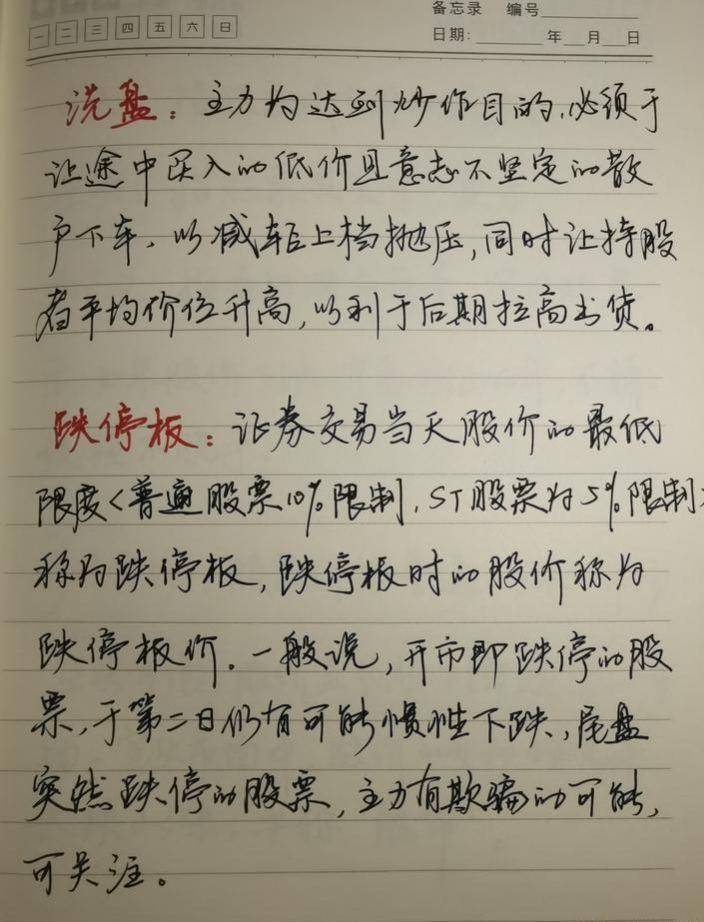 备忘录 编号
一 二 三 四 五 六 日
日期: 年 月 日
洗盘：主力为达到炒作目的,必须于
让途中买入的低价且意志不坚定的散
户下车,以减轻上档抛压,同时让持股
者平均价位升高,以利于后期拉高出货。
跌停板：证券交易当天股价的最低
限度<普通股票10%限制,ST股票为5%限制>
称为跌停板,跌停板时的股价称为
跌停板价.一般说,开市即跌停的股
票,于第二日仍有可能惯性下跌,尾盘
突然跌停的股票,主力有欺骗的可能,
可关注。